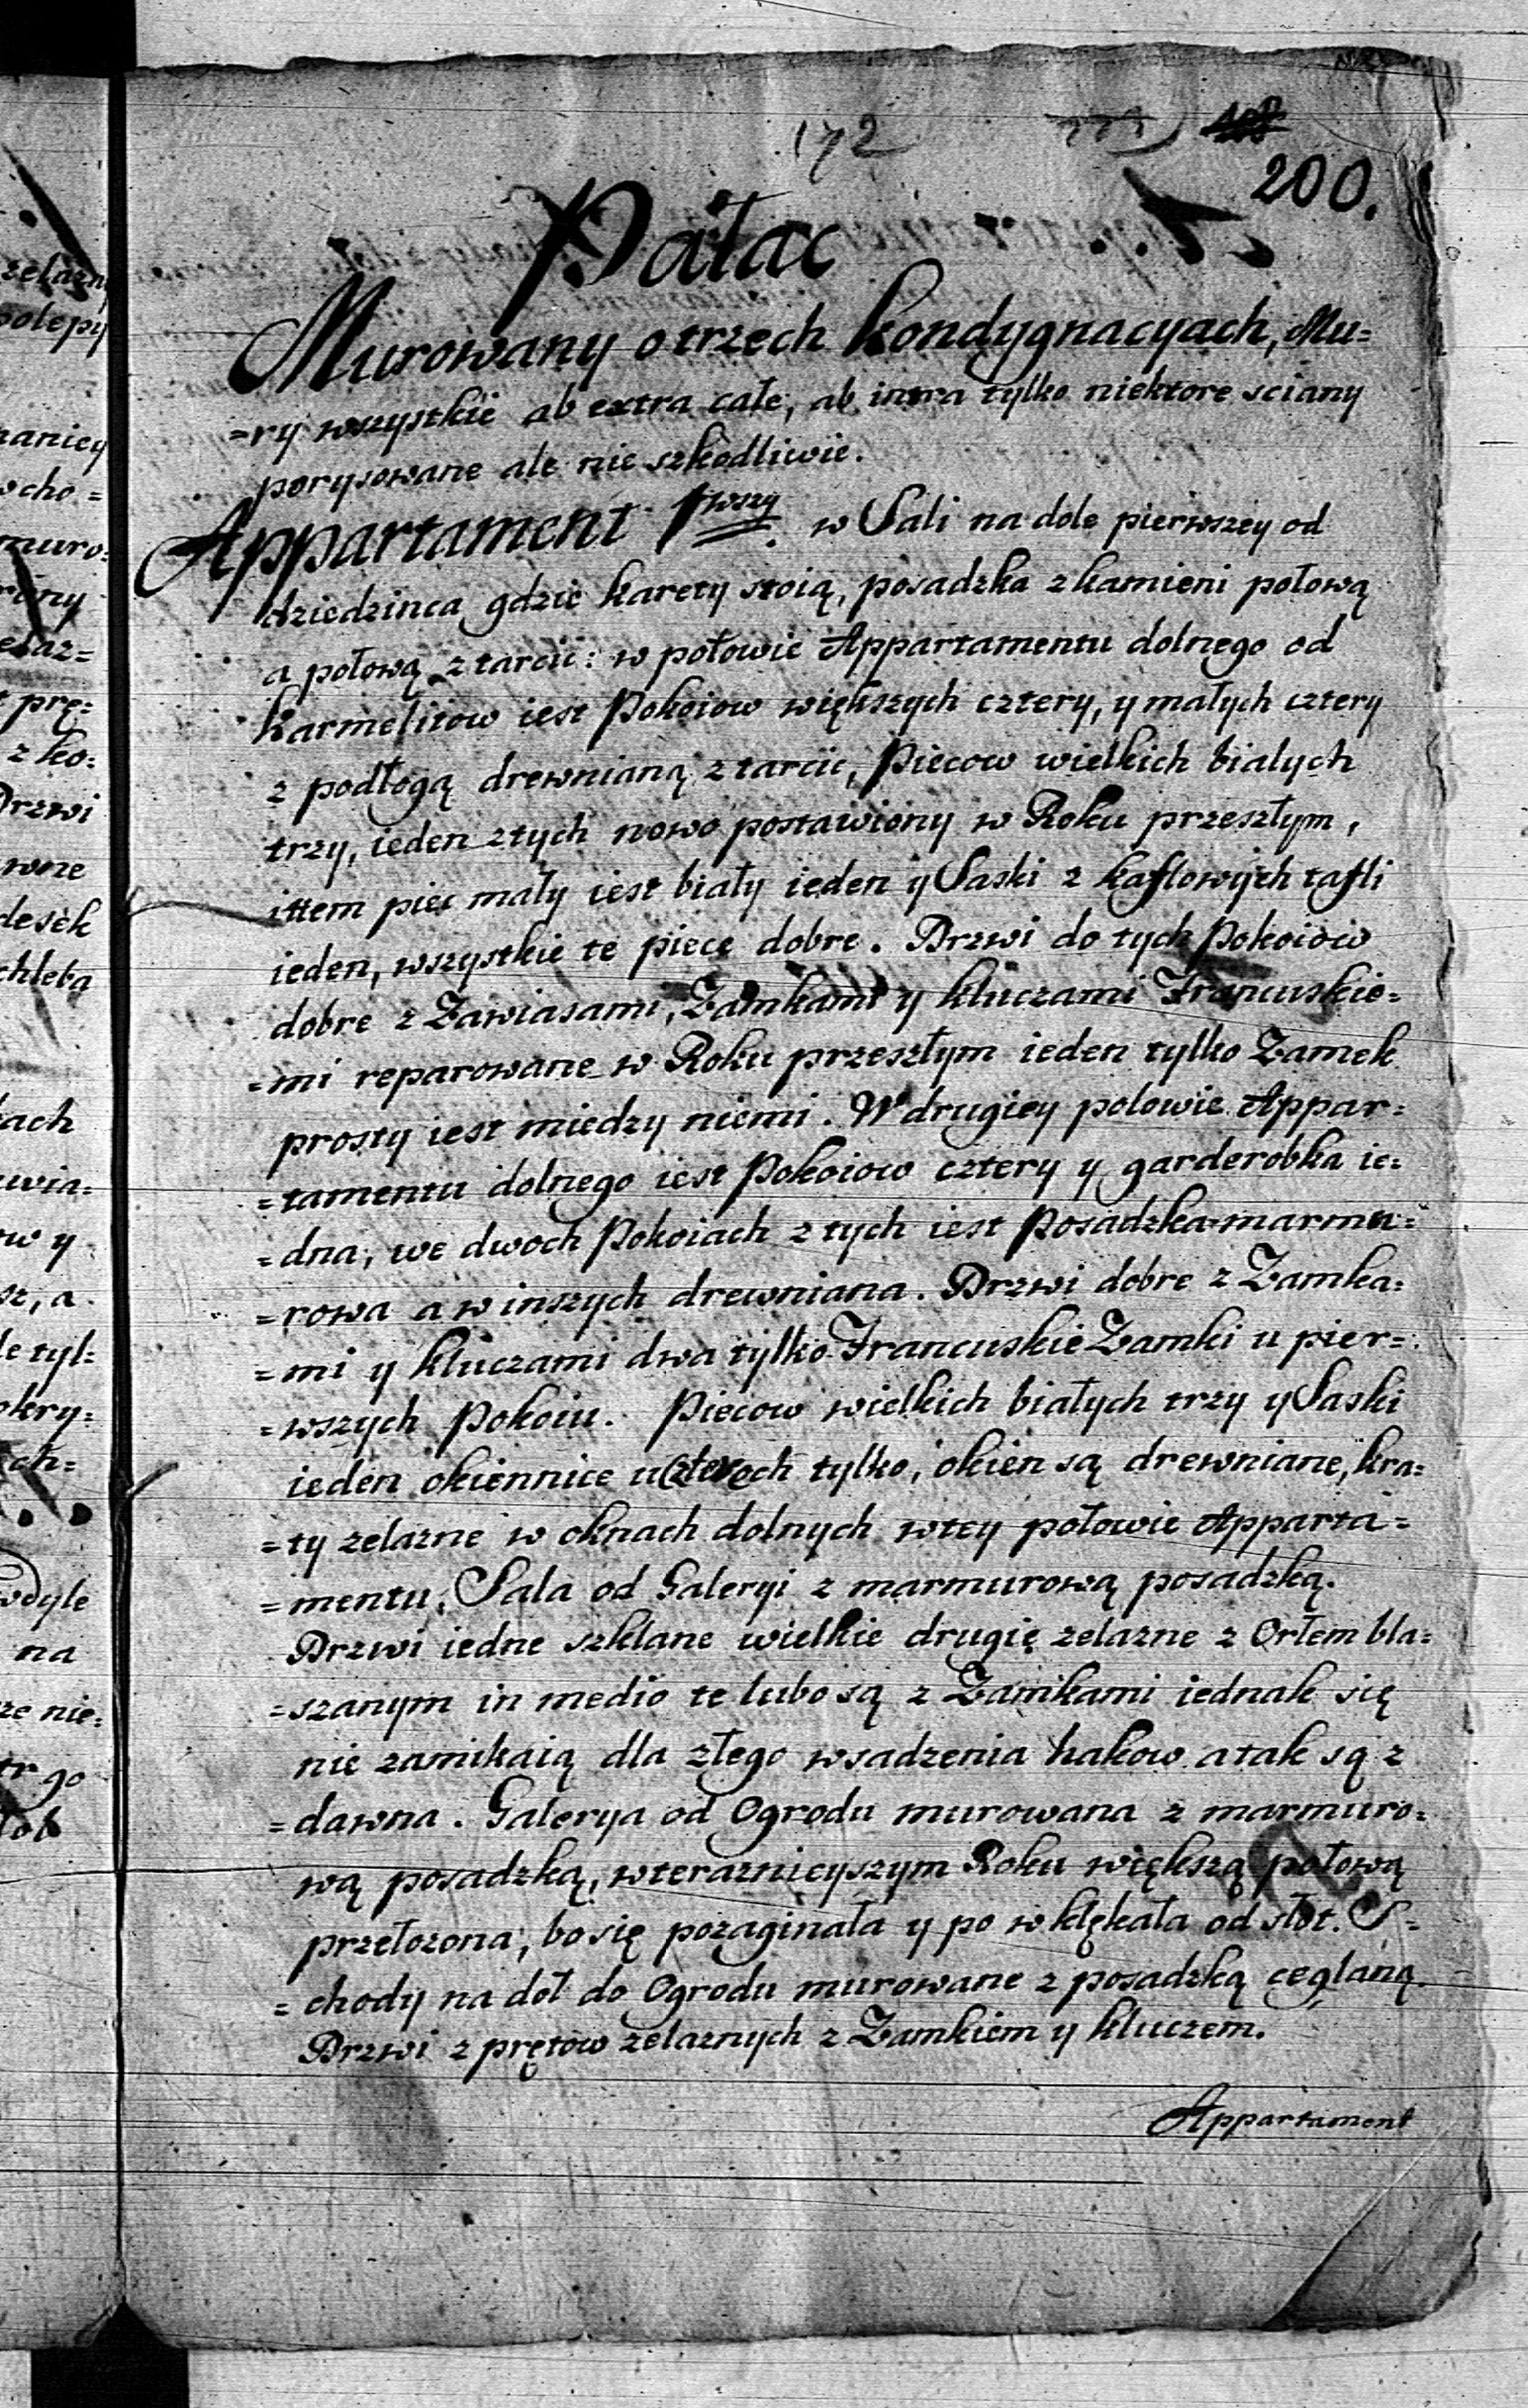 172
200.
Pałac
Murowany o trzech kondygnacyach, Mu=
=ry wszystkie ab extra całe, ab intra tylko niektore sciany
porysowane ale nie szkodliwie.
Appartament 1wszy. w Sali na dole pierwszey od
dziedzinca gdzie karety stoią, posadzka z kamieni połową
a połową z tarcic: w połowie Appartamentu dolnego od
Karmelitow iest Pokoiow większych cztery, y małych cztery
z podłogą drewnianą z tarcic, Piecow wielkich białych
trzy, ieden z tych nowo postawiony w Roku przeszłym,
ittem piec mały iest biały ieden y Saski z kaflowych tafli
ieden, wszystkie te piece dobre. Drzwi do tych Pokoiow
dobre z Zawiasami, Zamkami y kluczami Francuskie=
=mi reparowane w Roku przeszłym ieden tylko Zamek
prosty iest miedzy niemi. W drugiey polowie Appar=
=tamentu dolnego iest Pokoiow cztery y garderobka ie=
=dna, we dwoch Pokoiach z tych iest Posadzka marmu=
=rowa a w inszych drewniana. Drzwi dobre z Zamka=
=mi y kluczami dwa tylko Francuskie Zamki u pier=
=wszych Pokoiu. Piecow wielkich białych trzy y Saski
ieden okiennice u czteroch tylko, okien są drewniane, kra=
=ty zelazne w oknach dolnych w tey połowie Apparta=
=mentu, Sala od Galeryi z marmurową posadzką.
Drzwi iedne szklane wielkie drugię zelazne z Orłem bla=
=szanym in medio te lubo są z Zamkami iednak się
nie zamikaią dla złego wsadzenia hakow a tak są z
=dawna. Galerya od Ogrodu murowana z marmuro=
wą posadzką, w teraznieyszym Roku większą połową
przełozona, bo się pozaginała y po wklękała od słot. S=
=chody na doł do Ogrodu murowane z posadzką ceglaną.
Drzwi z prętow zelaznych z Zamkiem y kluczem.
Appartament